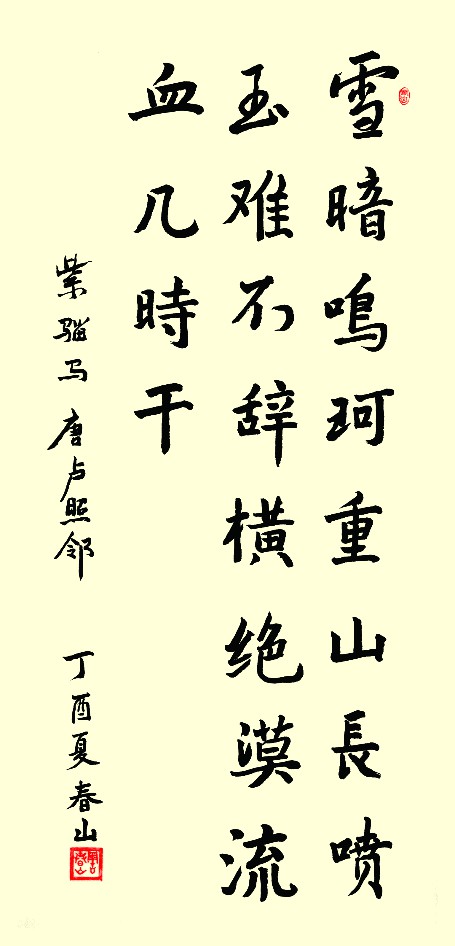 雪暗鳴珂重山長喷
玉难不辞横绝漠流
血几時干
紫骝马 唐卢照邻 丁酉夏春山